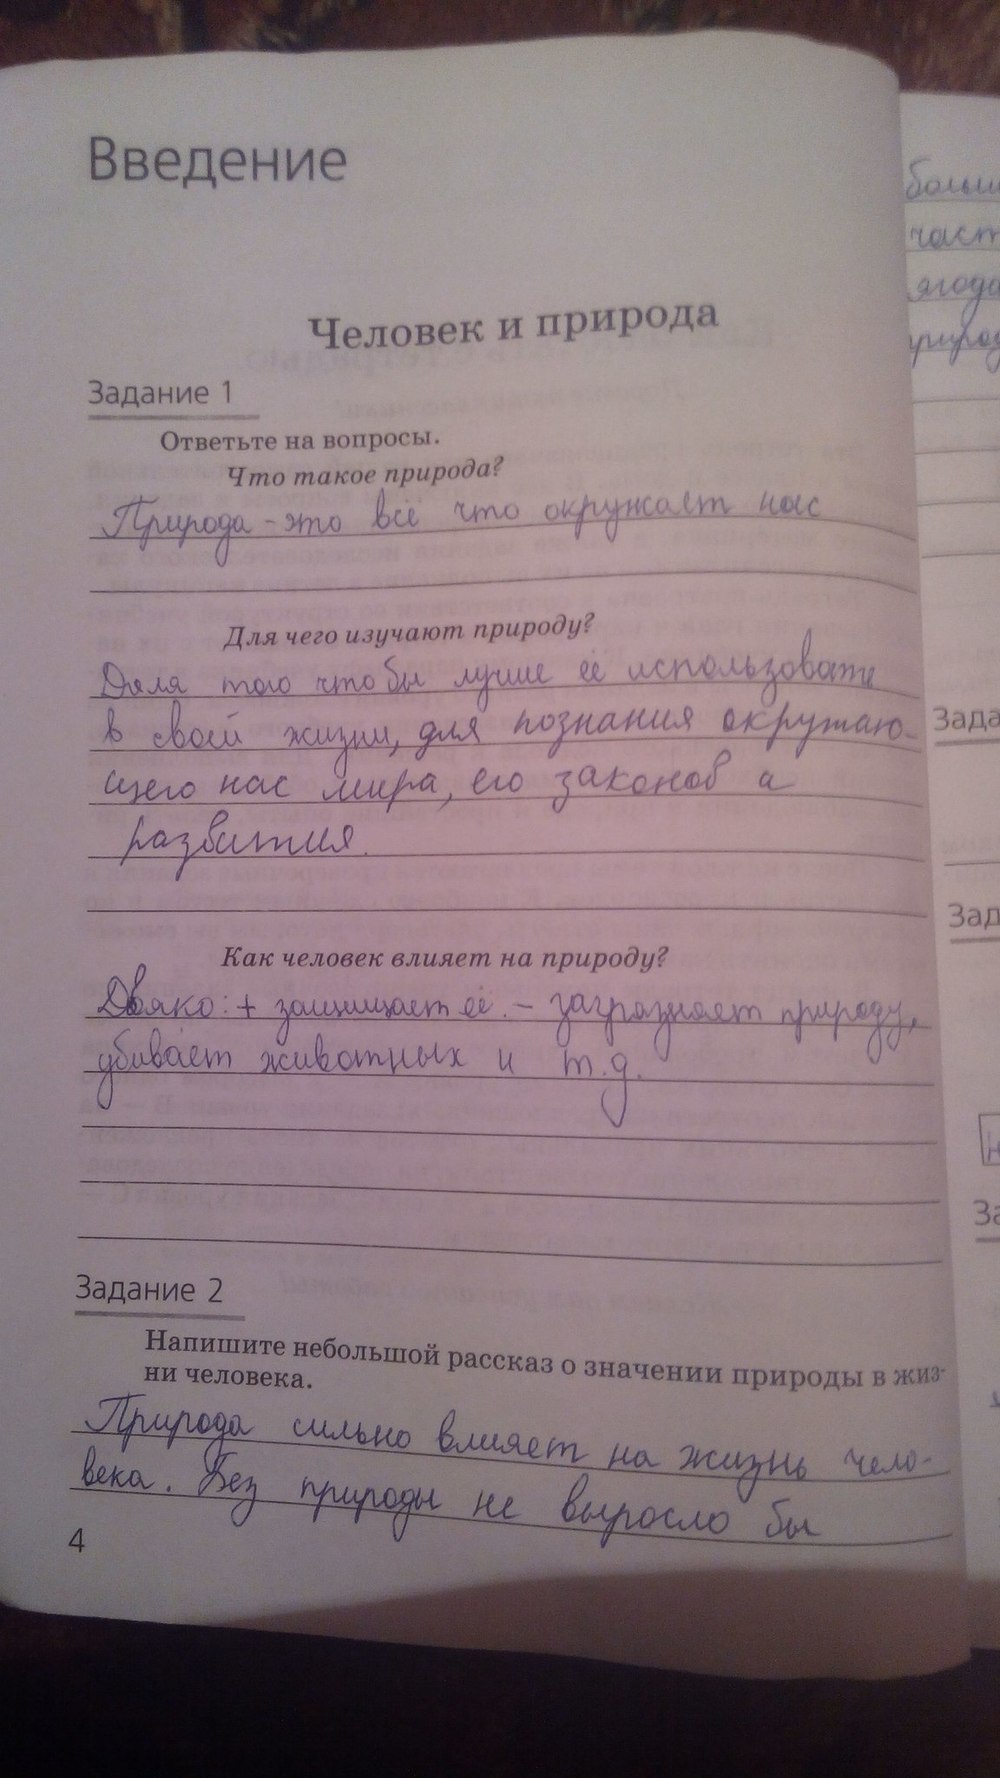 Введение
Человек и природа
Задание 1
Ответьте на вопросы.
Что такое природа?
Природа - это всё что окружает нас
Для чего изучают природу?
Для того что бы лучше её использовать
в своей жизни, для познания окружаю-
щего нас мира, его законов и
развития.
Как человек влияет на природу?
Двояко: + защищает её. - загразняет природу,
убивает животных и т.д.
Задание 2
Напишите небольшой рассказ о значении природы в жиз-
ни человека.
Природа сильно влияет на жизнь чело-
века. Без природы не выросло бы
4
больш
част
ягода
природ
Зада
Зад
За